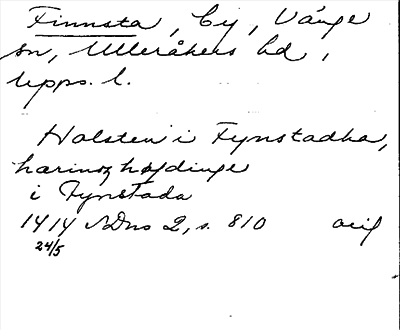 Finnsta, by, Vänge
sn, Ulleråkers hd,
Upps. l.
Holsten i Fynstadha,
härinz høfdinge
i Fynstada
1414 SDns 2, s. 810 orig
24/5